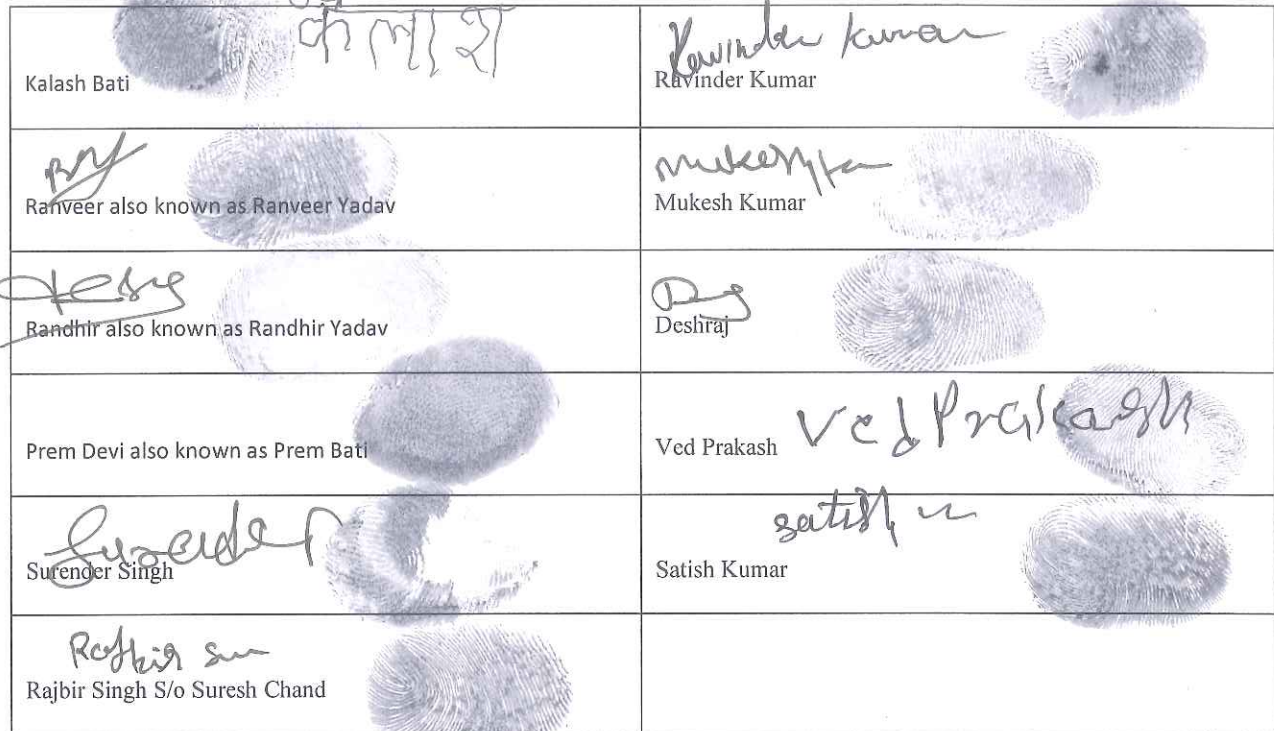 कलाश
Kalash Bati
Ravinder Kumar
Ravinder Kumar
Ranveer also known as Ranveer Yadav
Mukesh Kumar
Randhir also known as Randhir Yadav
Deshraj
Prem Devi also known as Prem Bati
Ved Prakash
Ved Prakash
Surender
Surender Singh
Satish
Satish Kumar
Rajbir
Rajbir Singh S/o Suresh Chand